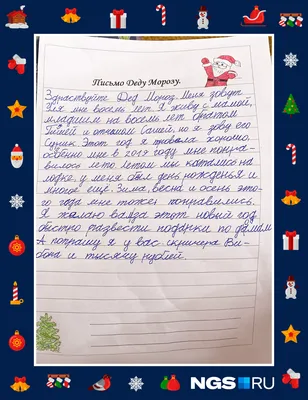 Письмо Деду Морозу.
Здраствуйте Дед Мороз. Меня зовут
мне восемь лет. Я живу с мамой,
младшим на восемь лет братом
и отчимом Сашей, но я зову его
Этот год я провела хорошо.
особенно мне в 2019 году мне понра-
вилось лето. Летом мы катались на
лодке, у меня был день рожденья и
многое ещё. Зима, весна и осень это-
го года мне тоже понравились.
Я желаю вам в этот новый год
быстро развести подарки по домам.
А попрошу я у вас скринчера Ви-
бона и тысячу рублей.
NGS RU